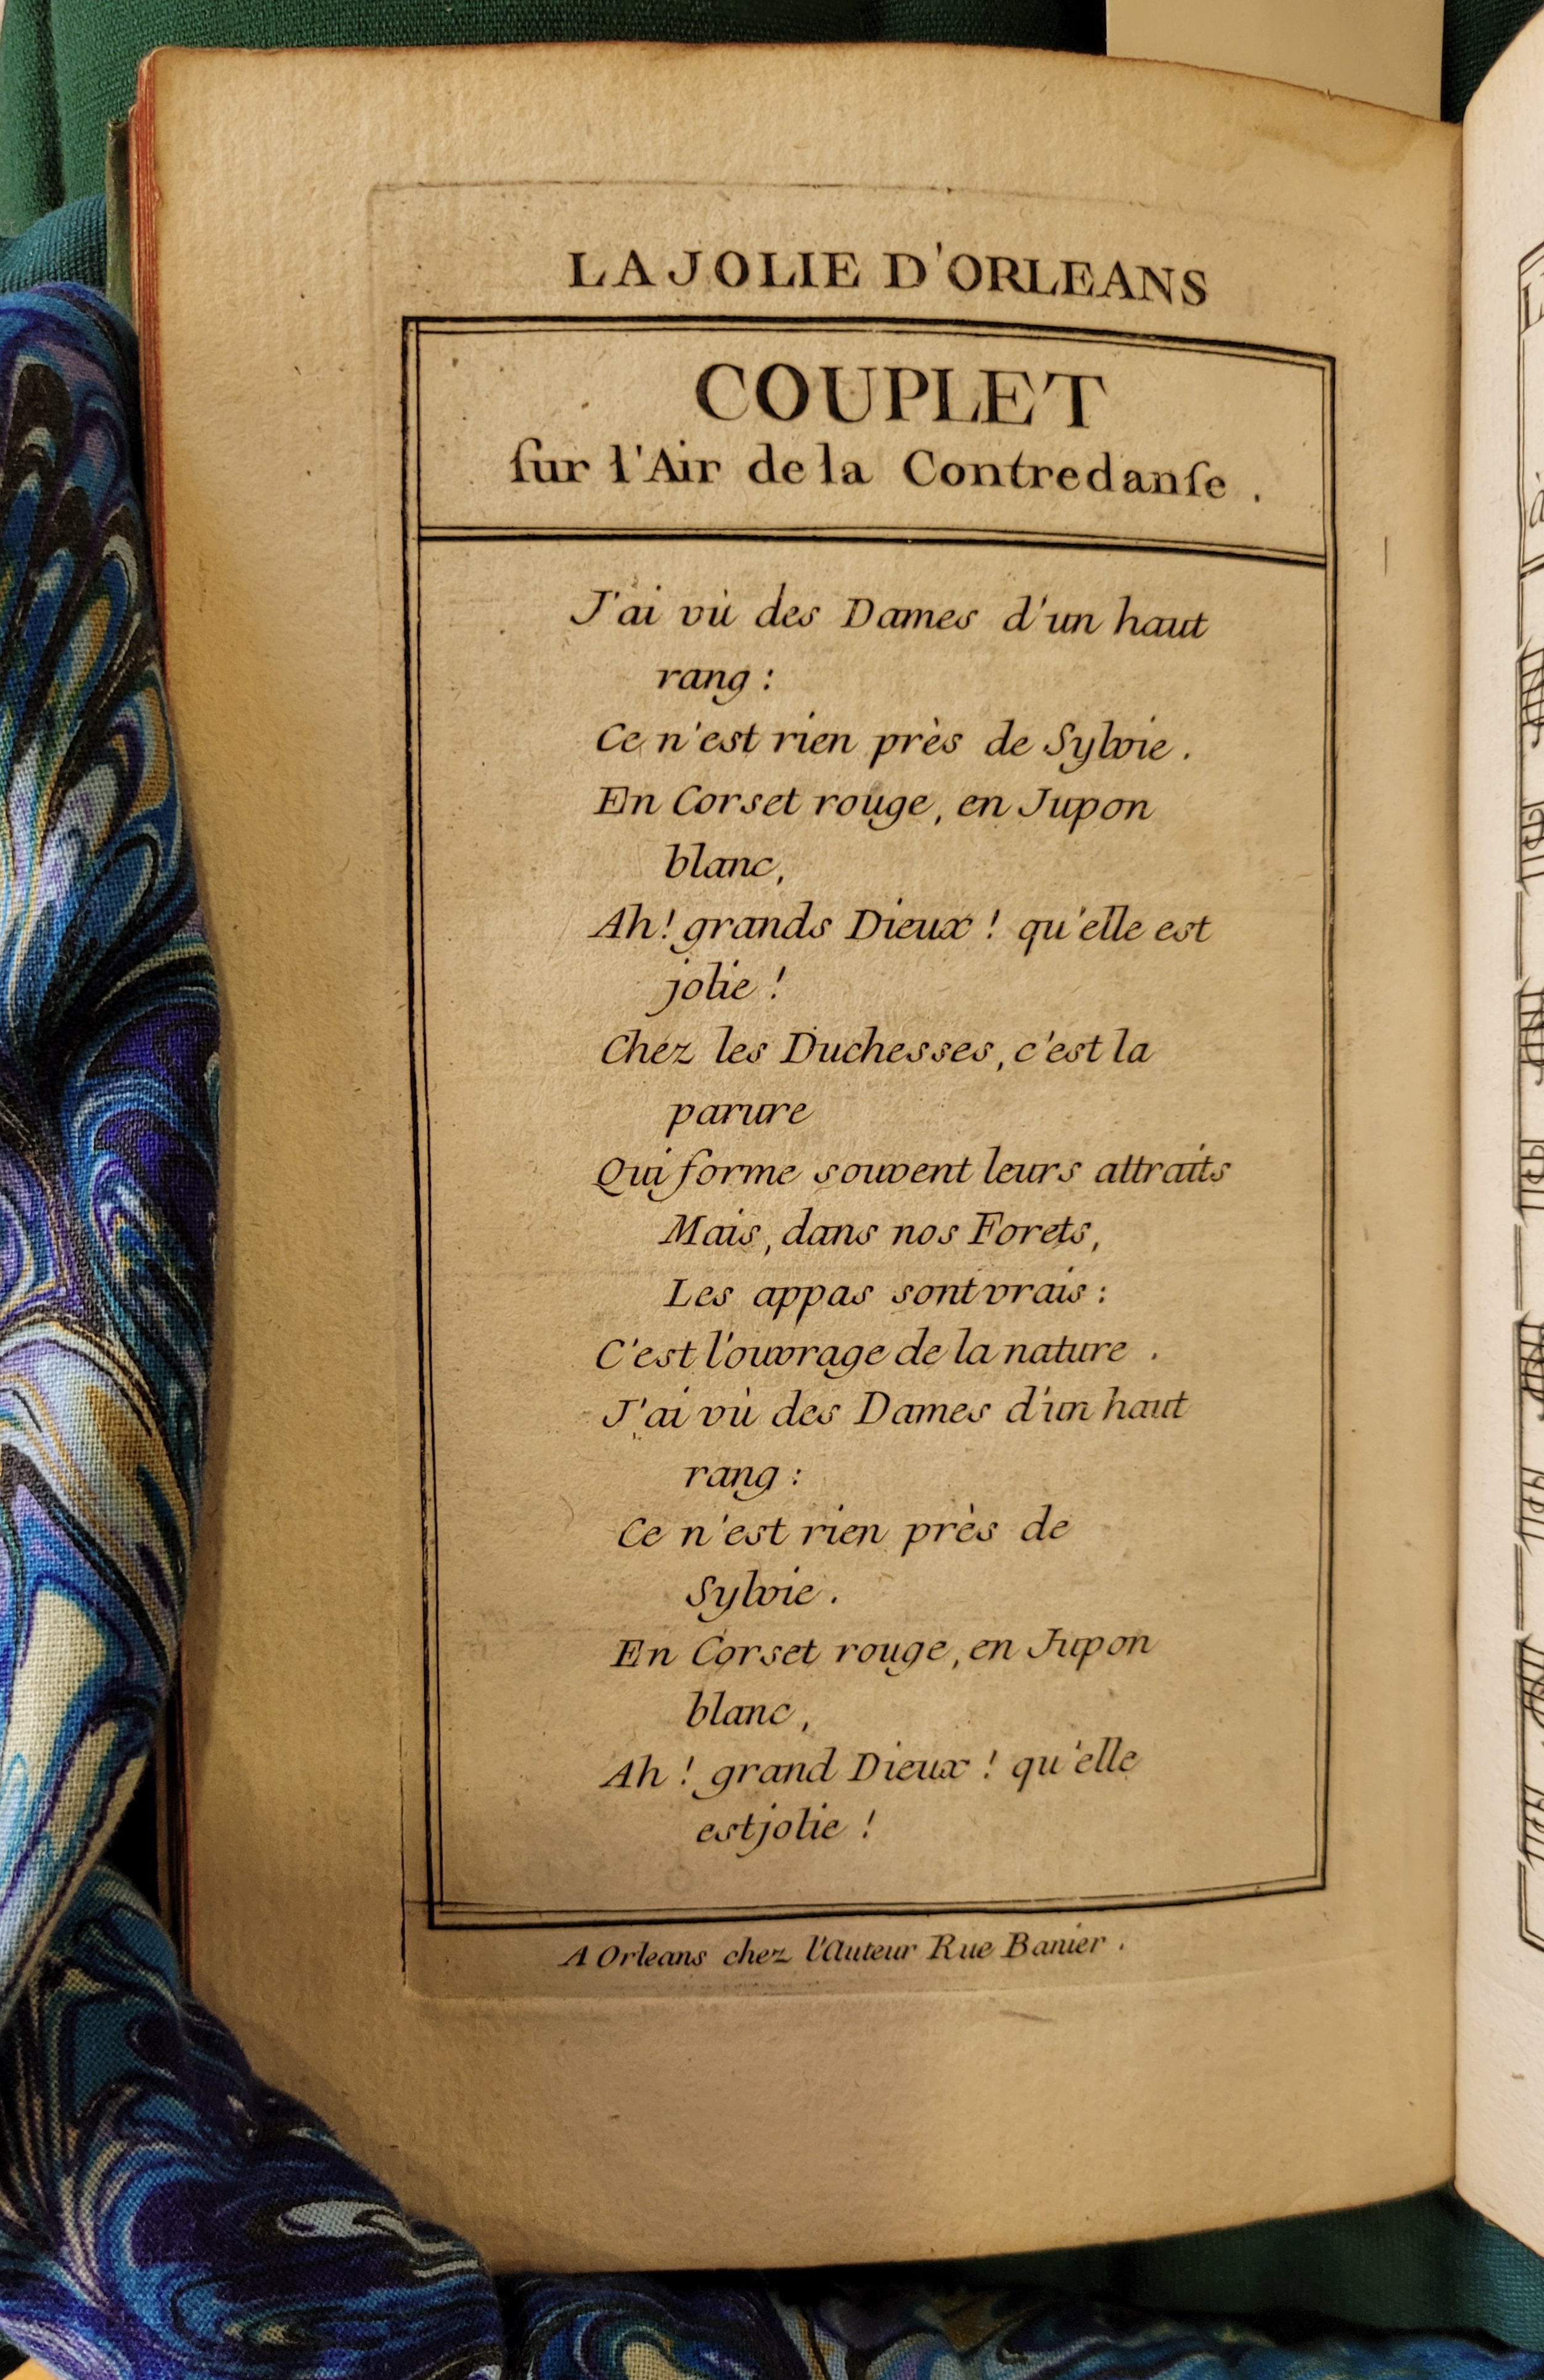 LA JOLIE D'ORLEANS
COUPLET
ſur l'Air de la Contredanſe .
J'ai vù des Dames d'un haut
rang :
Ce n'est rien près de Sylvie .
En Corset rouge, en Jupon
blanc,
Ah! grands Dieux ! qu'elle est
jolie !
Chez les Duchesses, c'est la
parure
Qui forme souvent leurs attraits
Mais, dans nos Forets,
Les appas sont vrais :
C'est l'ouvrage de la nature .
J'ai vù des Dames d'un haut
rang :
Ce n'est rien près de
Sylvie .
En Corset rouge, en Jupon
blanc ,
Ah ! grand Dieux ! qu'elle
est jolie !
A Orleans chez l'Auteur Rue Banier .